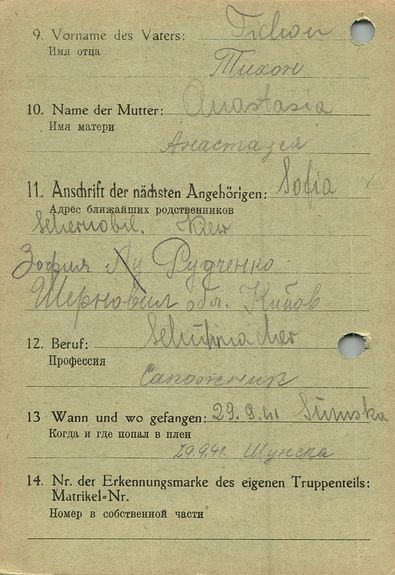 9. Vorname des Vaters: Tichon
Имя отца
Тихон
10. Name der Mutter: Anastasia
Имя матери
Анастазея
11. Anschrift der nächsten Angehörigen: Sofia
Адрес ближайших родственников
Schernobil. Kiew
Зофия Рудченко
Шерновил обл. Києов
12. Beruf: Schuhmacher
Профессия
Сапожник
13 Wann und wo gefangen: 29.9.41 Sumska
Когда и где попал в плен
29.9.41. Шумска
14. Nr. der Erkennungsmarke des eigenen Truppenteils:
Matrikel=Nr.
Номер в собственной части